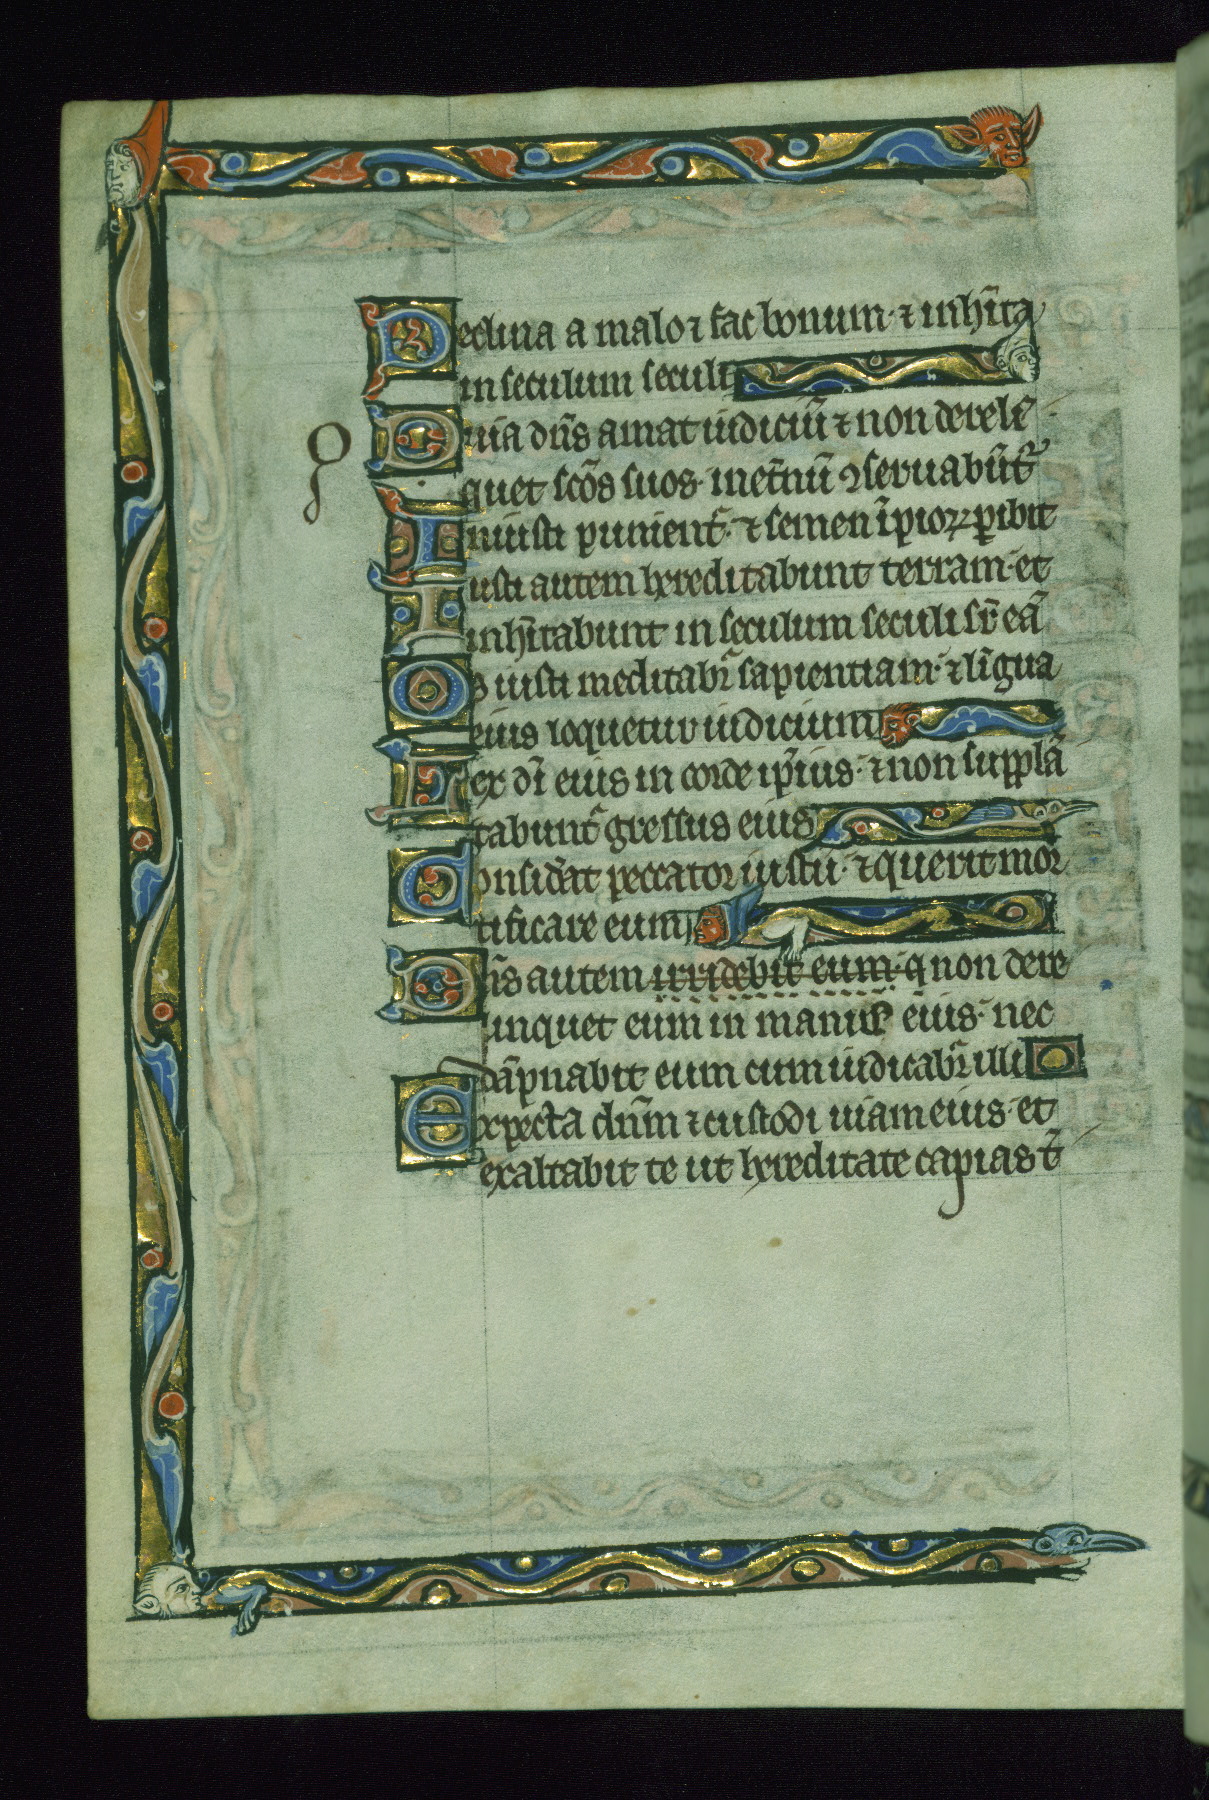 Declina a malo ⁊ fac bonum· ⁊ inhīta
in seculum seculi
Quia dn̄s amat iudiciū ⁊ non dereli
quet scōs suos· inet̄nū ꝯseruabūt᷑
Iniusti punient᷑· ⁊ semen īpioꝝ ꝑibit
Iusti autem hereditabunt terram· et
inhītabunt in seculum seculi sr̄ eā
Os iusti meditabr᷑ sapientiam· ⁊ līgua
eius loquetur iudicium
Lex dī eius in corde ip̄ius· ⁊ non supplā
tabunt᷑ gressus eius
Considāt peccator iustū· ⁊ querit mor
tificare eum
Dn̄s autem irridebit eum· q̄ non dere
linquet eum in manib; eius· nec
dāpnabit eum cum iudicabr᷑ illi
Expecta dn̄m ⁊ custodi uiam eius· et
exaltabit te ut hereditate capias t̄